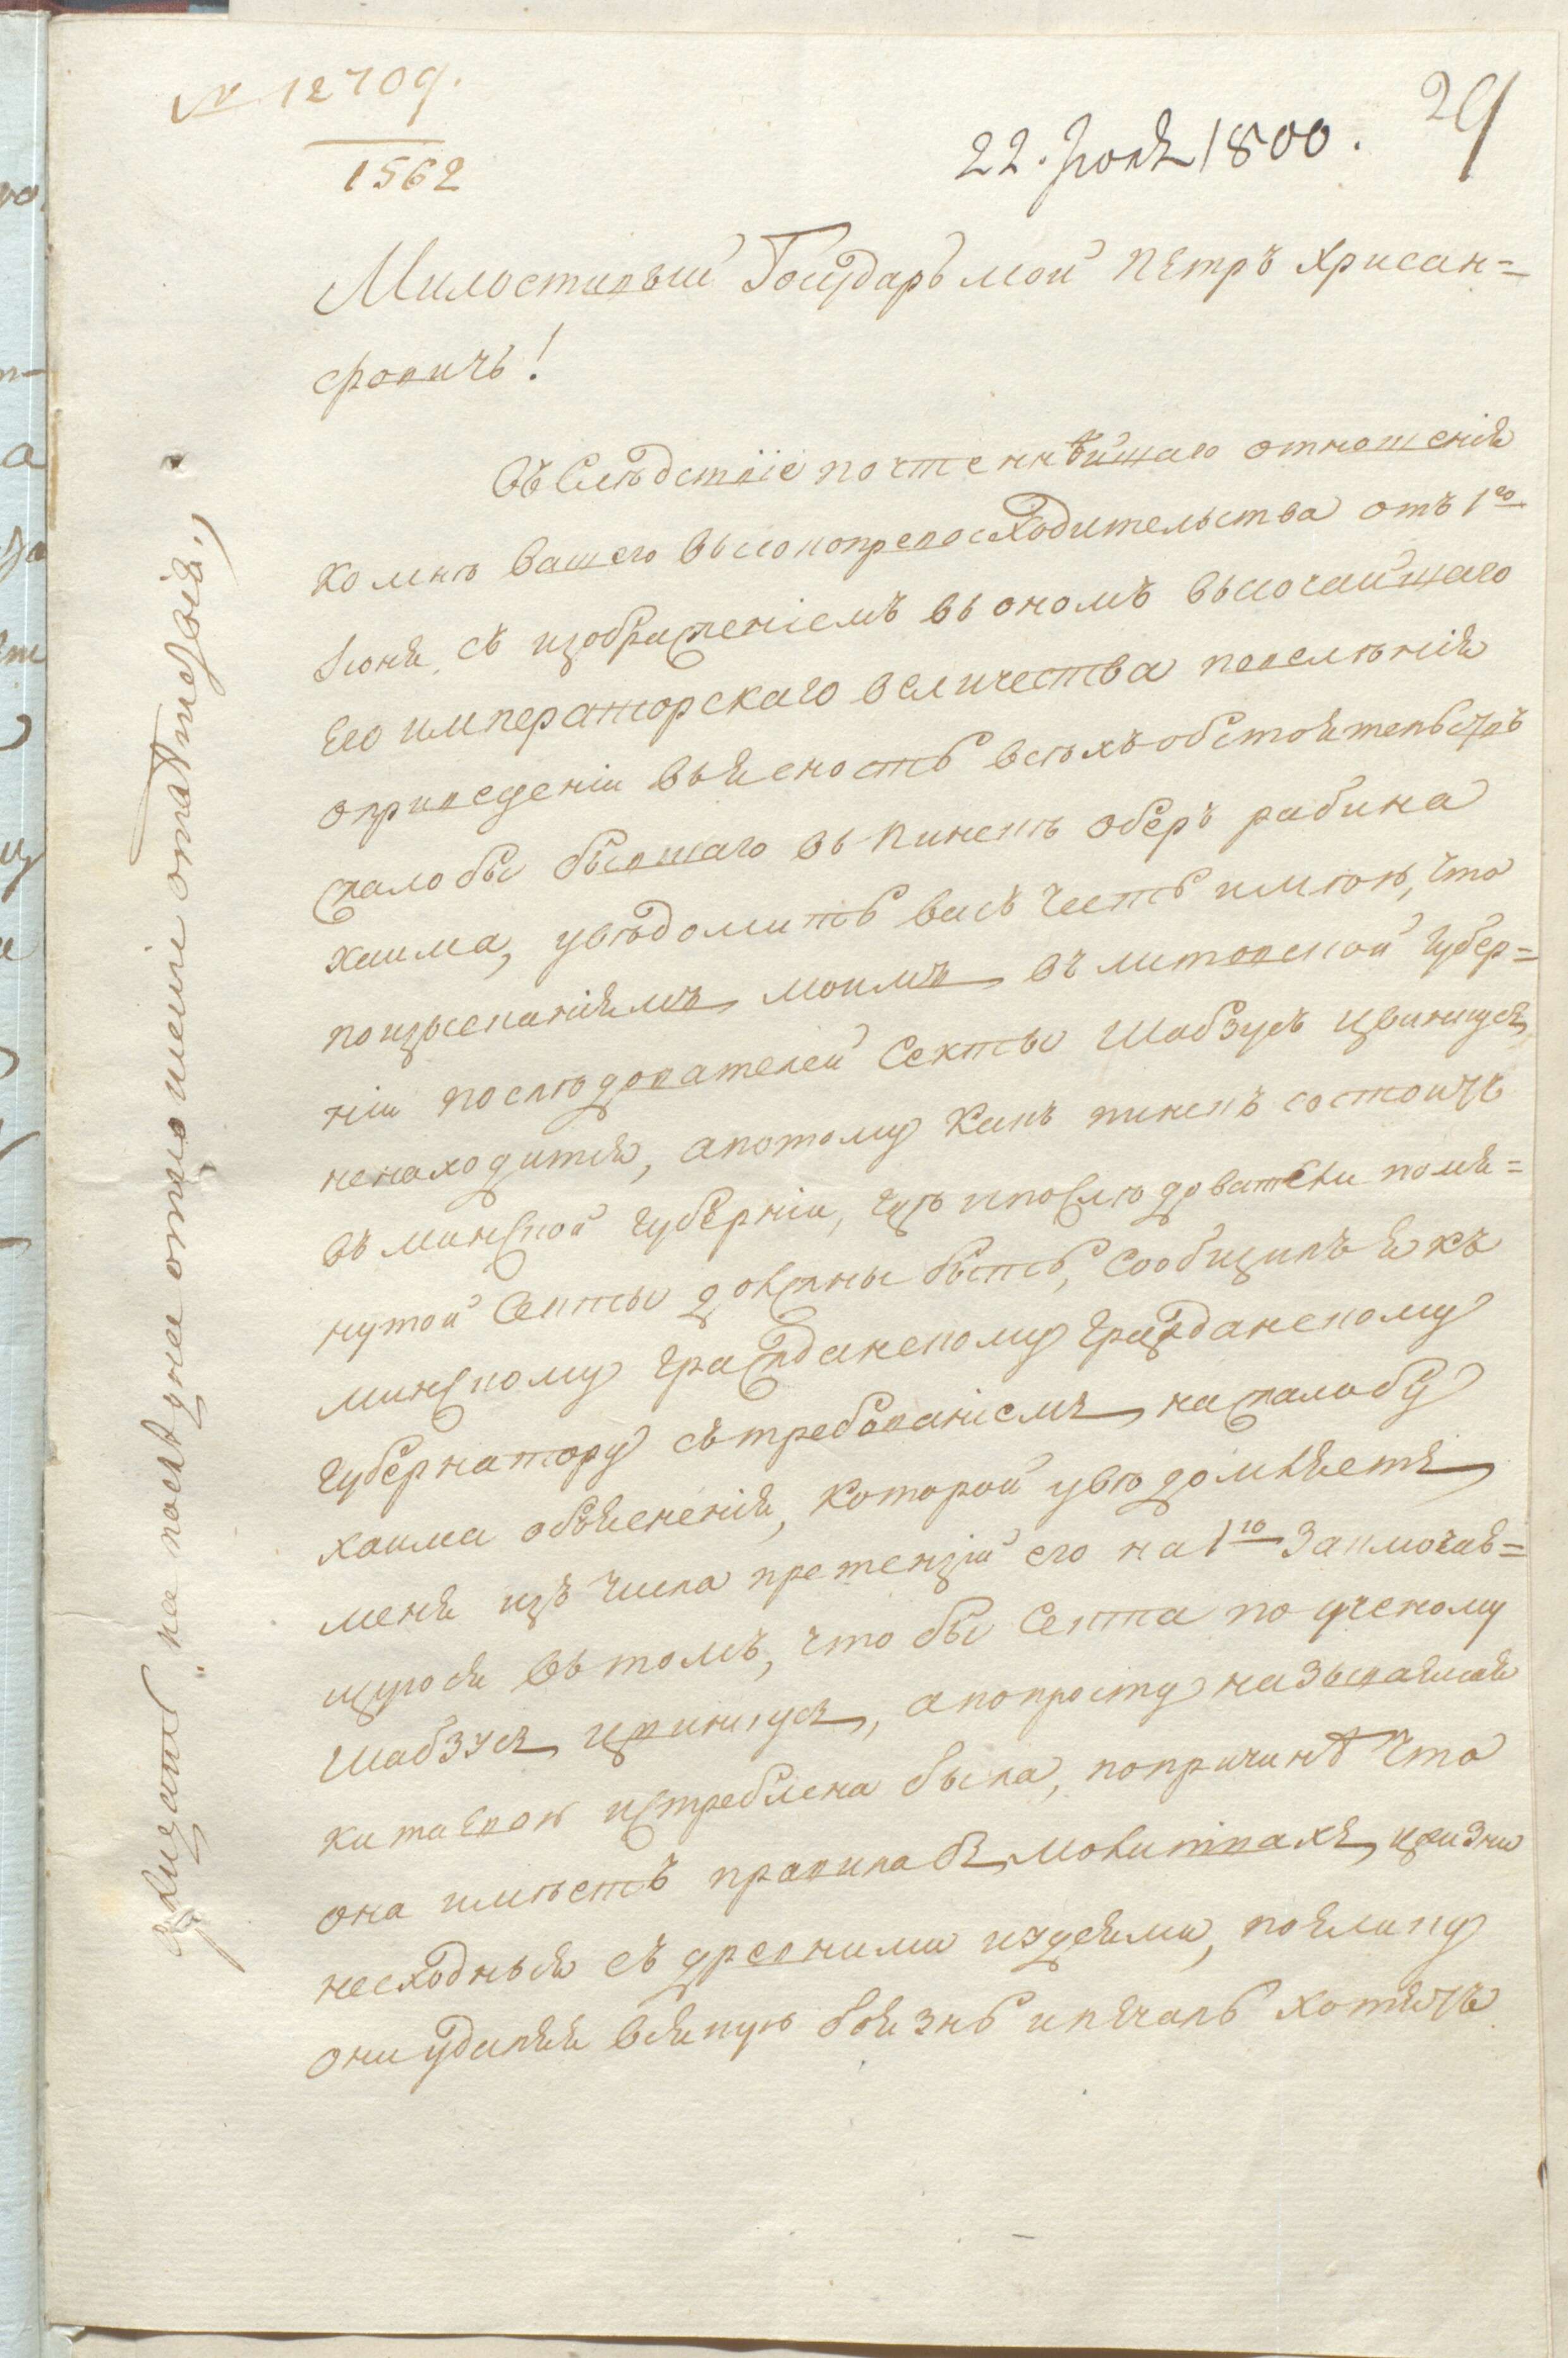 № 12709.
1562
22. Іюня 1800.
29
Милостивый Государь мой Петръ Хрисан=
фовичь!
Въ Следствіе почтеннѣйшаго отношенія
ко мнѣ вашего высокопревосходительства отъ 1го
Іюня, съ изображеніемъ въ ономъ высочайшаго
Его императорскаго величества повелѣнія
о приведеніи въ ясность всѣхъ обстоятельствъ
жалобы бывшаго въ Пинскѣ обер рабина
хаима, увѣдомить васъ честь имѣю, что
по изысканіямъ моимъ въ литовской губер=
ніи послѣдователей Секты Шабзусъ цвинцусъ
ненаходится, а потому какъ пинскъ состоитъ
въ минской губерніи, гдѣ и послѣдователи помя=
нутой Секты должны быть, сообщилъ я къ
минскому гражданскому гражданскому
губернатору съ требованіемъ на жалобу
хаима объясненія, которой увѣдомляетъ
меня изъ числа претензій его на 1ю заключав=
шуюся въ томъ, что бы Секта по ученому
Шабзусъ цвинцусъ, а попросту называемая
китаевою истреблена была, по причинѣ что
она имѣетъ правила въ молитвахъ, и жизни
несходныя съ древними іудеями, поелику
они удаляя всякую боязнь и печаль хотятъ
на послѣдннѣ отношеніи